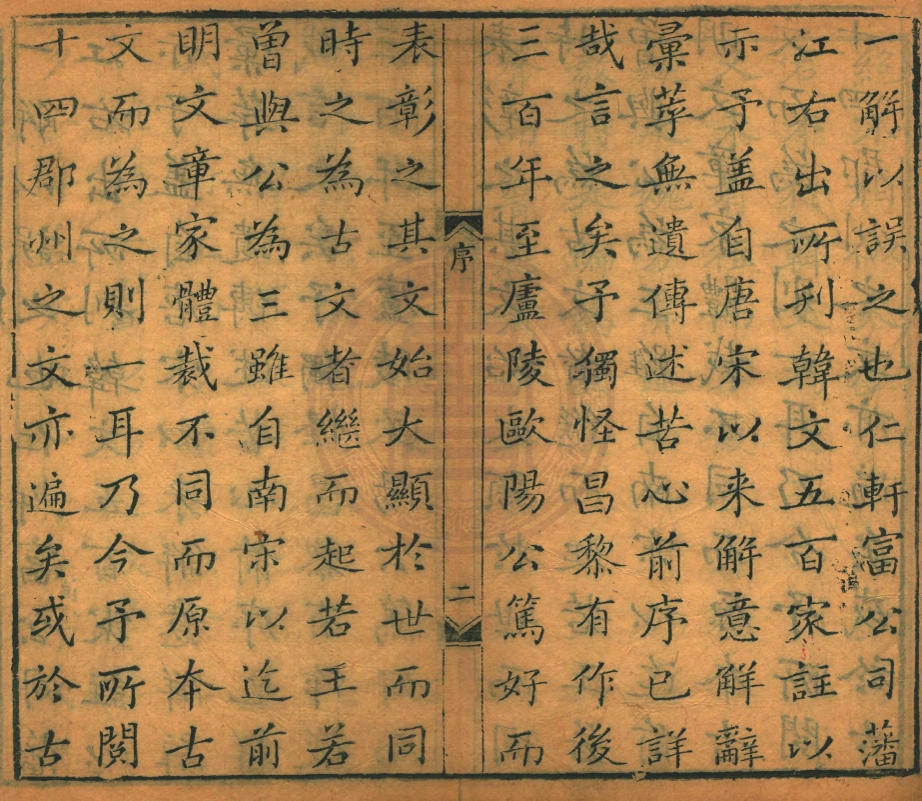 一解以誤之也仁軒富公司藩
江右出所刋韓文五百家註以
示予盖自唐宋以来解意解辭
彚萃無遺傳述苦心前序已詳
哉言之矣予獨怪昌黎有作後
三百年至廬陵歐陽公篤好而
序
二
表彰之其文始大顯於世而同
時之為古文者繼而起若王若
曽與公為三雖自南宋以迄前
明文章家體裁不同而原本古
文而為之則一耳乃今予所閱
十四郡州之文亦遍矣或於古